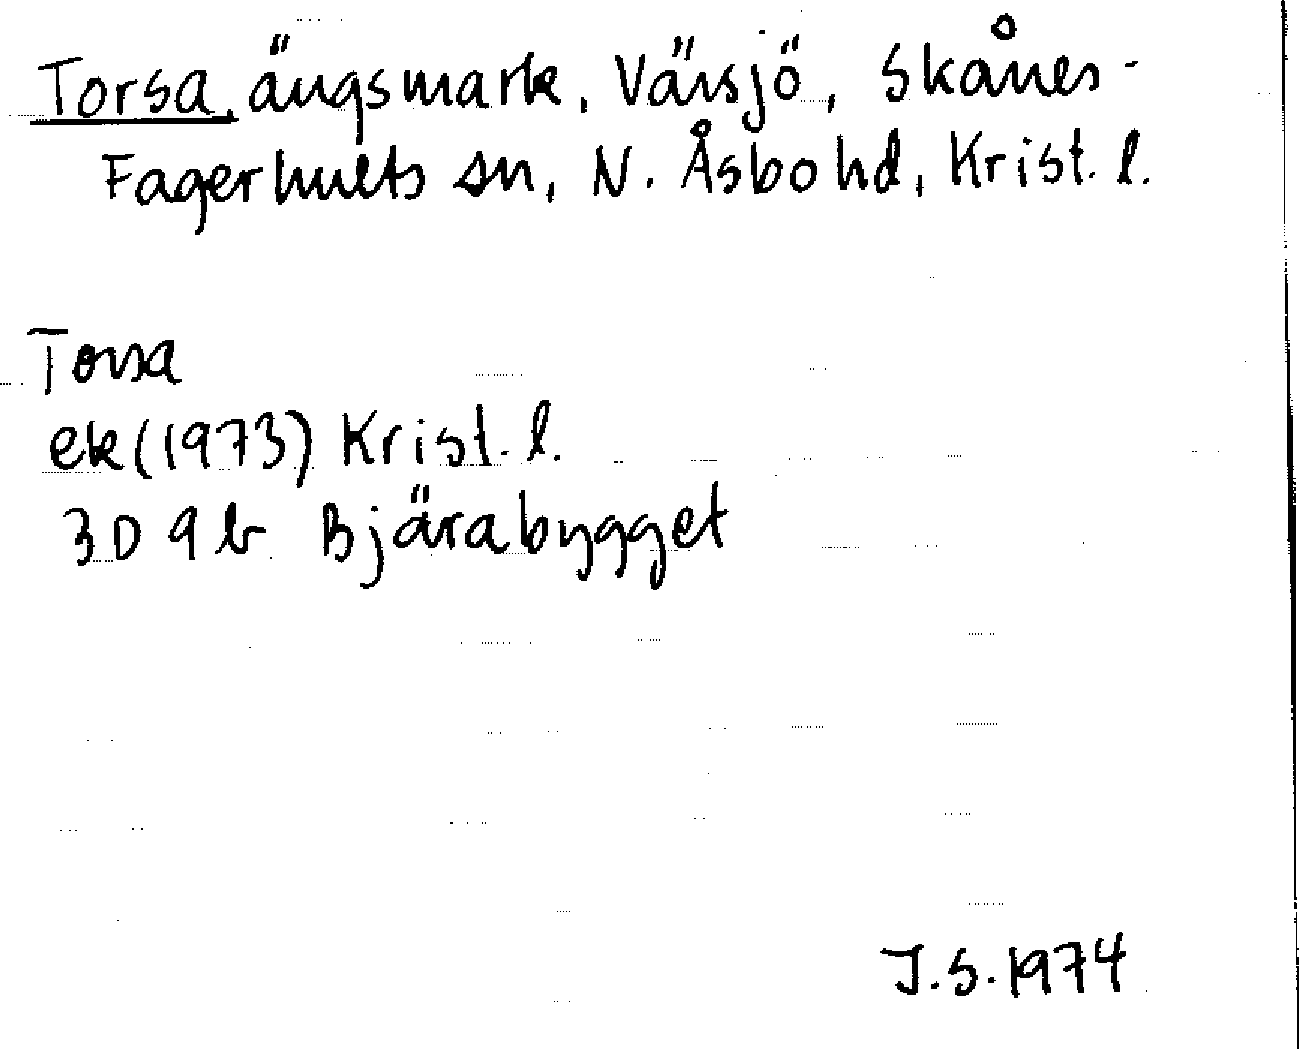 Torsa, ängsmark, Värsjö, Skånes-
Fagerhults sn, N. Åsbo hd, Krist. l.
Torsa
ek (1973) Krist. l.
3D 9b Bjärabygget
J.S. 1974